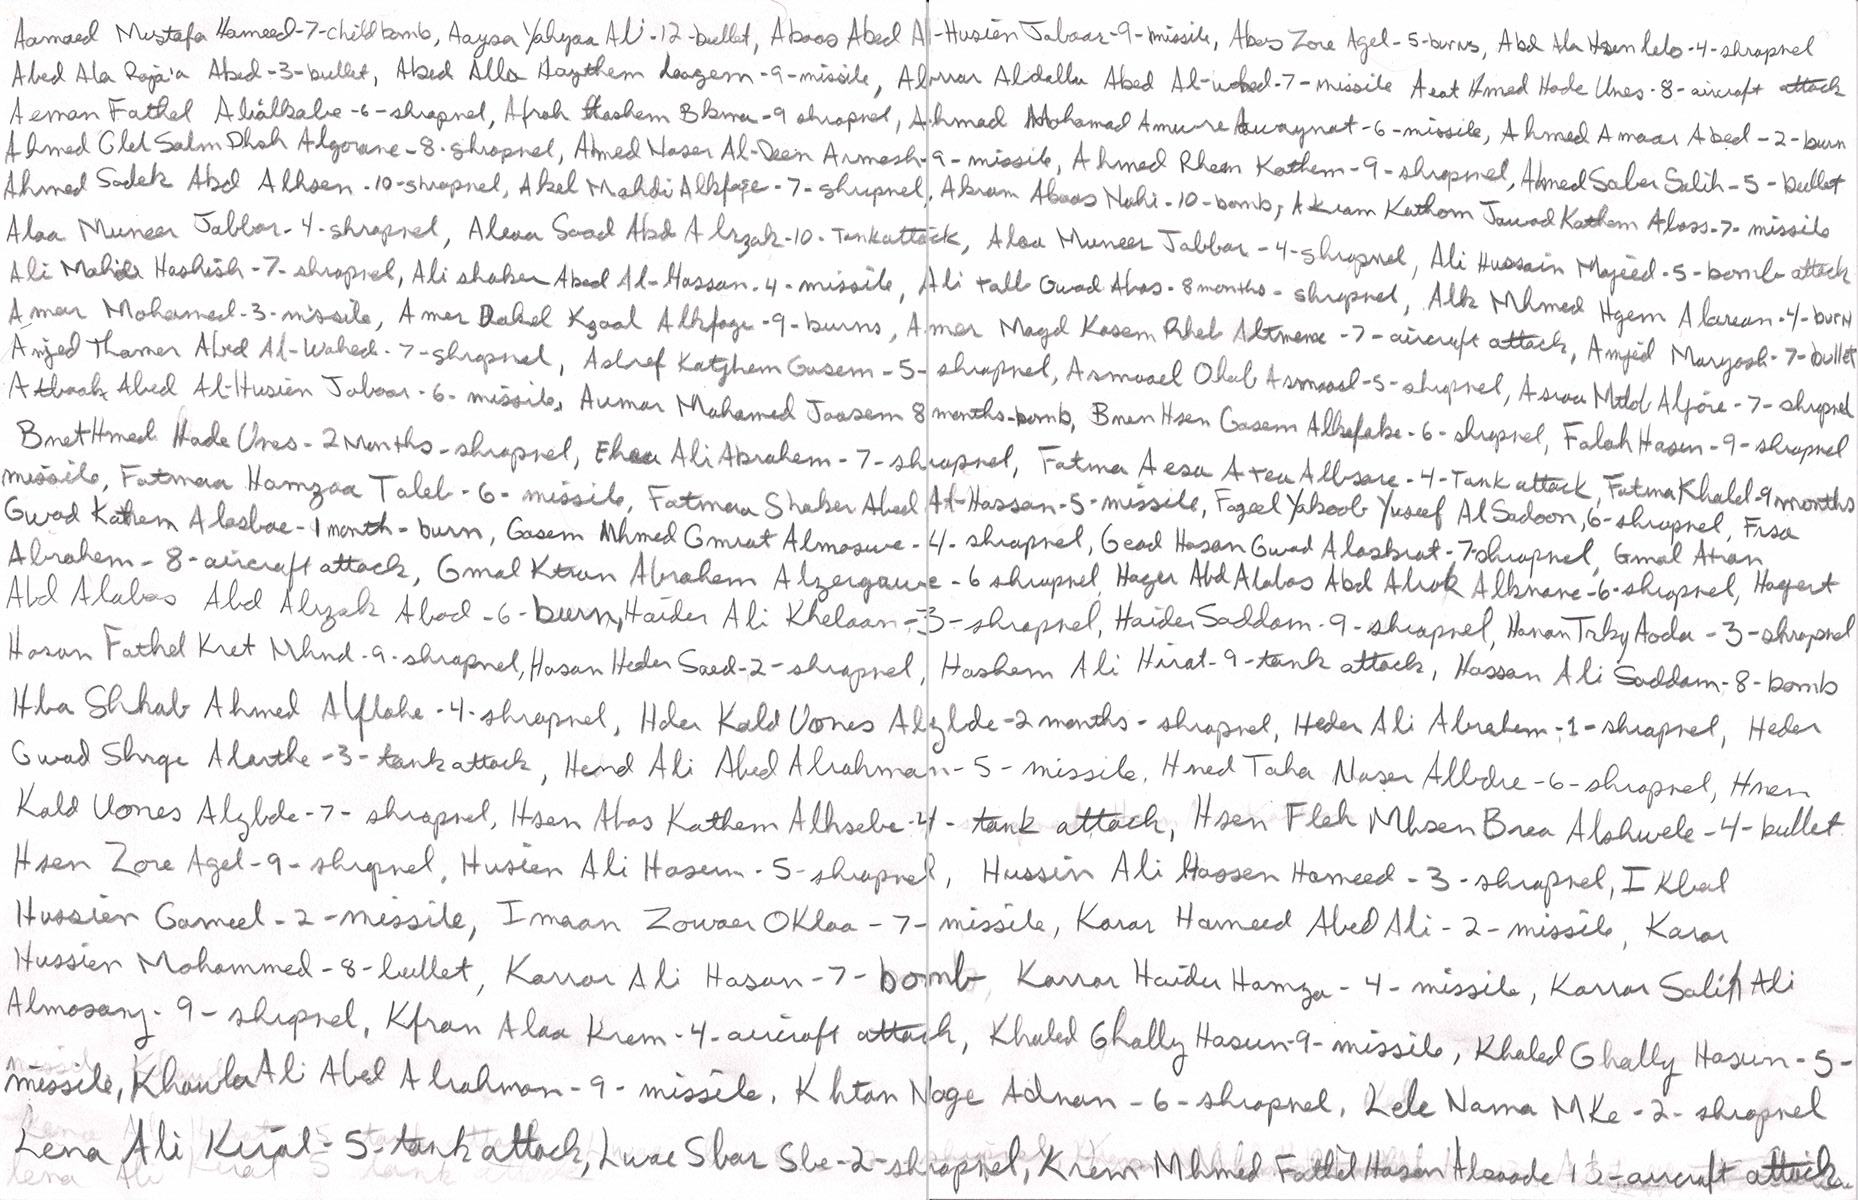 Aamaed Mustafa Hameed-7-child bomb, Aaysa Yahyaa Ali-12-bullet, Abaas Abed Al-Husien Jabaar-9-missile, Abas Zore Agel-5-burns, Abd Ala Hsen lelo-4-shrapnel
Abed Ala Raja'a Abed-3-bullet, Abed Alla Haythem Laazem-9-missile, Abrrar Abdalla Abed Al-wahed-7-missile Aeat Hmed Hade Unes-8-aircraft attack
Aeman Fathel Alialkabe-6-shrapnel, Afrah Hashem Bkma-9 shrapnel, Ahmad Mohamad Amuure Auwaynat-6-missile, Ahmed Amaar Abed-2-burn
Ahmed Glel Salm Dhah Algorane-8-shrapnel, Ahmed Naser Al-Deen Armash-9-missile, Ahmed Rheem Kathem-9-shrapnel, Ahmed Saber Salih-5-bullet
Ahmed Sadek Abd Alhsen-10-shrapnel, Akel Mahdi Alkfage-7-shrapnel, Akram Abaas Nahi-10-bomb, Akram Kathom Jawad Kathem Abass-7-missile
Alaa Muneer Jabbar-4-shrapnel, Aleaa Saad Abd Alrzak-10-Tank attack, Alaa Muneer Jabbar-4-shrapnel, Ali Hussain Majeed-5-bomb attack
Ali Mahide Hashish-7-shrapnel, Ali shaker Abed Al-Hassan-4-missile, Ali talb Gwad Abas-8 months-shrapnel, Alk Mhmed Hgem Alarean-4-burn
Amar Mohamed-3-missile, Amer Dakel Kzaal Alkfage-9-burns, Amer Magd Kasem Rheb Altmeme-7-aircraft attack, Amjed Maryosh-7-bullet
Amjed Thamer Abed Al-Wahed-7-shrapnel, Ashref Katghem Gasem-5-shrapnel, Asmaael Ohab Asmaael-5-shrapnel, Asraa Mtlob Aljore-7-shrapnel
Atbaak Abed Al-Husien Jabaar-6-missile, Aumar Mahamed Jaasem 8 months-bomb, Bnen Hsen Gasem Alkefake-6-shrapnel, Falah Hasan-9-shrapnel
Bnet Hmed Hade Unes-2 Months-shrapnel, Ehaa Ali Abrahem-7-shrapnel, Fatma Aesa Atea Albsare-4-Tank attack, Fatma Khaled-9 months
missile, Fatmaa Hamzaa Taleb-6-missile, Fatmaa Shaker Abed Al-Hassan-5-missile, Fazeel Yakoob Yuseef Al Sadoon, 6-shrapnel, Frsa
Gwad Kathem Alasbae-1 month-burn, Gasem Mhmed Gmrat Almoswe-4-shrapnel, Gead Hasan Gwad Alasbrat-7-shrapnel, Gmal Atran
Abrahem-8-aircraft attack, Gmal Ktran Abrahem Alzergawe-6 shrapnel, Hager Abd Alabas Abd Alrok Alknane-6-shrapnel, Hagert
Abd Alabas Abd Alrzak Abod-6-burn, Haider Ali Khelaan-3-shrapnel, Haider Saddam-9-shrapnel, Hanan Trky Aoda-3-shrapnel
Hasan Fathel Kret Mhnd-9-shrapnel, Hasan Heder Saed-2-shrapnel, Hashem Ali Hirat-9-tank attack, Hassan Ali Saddam-8-bomb
Hba Shhab Ahmed Alflahe-4-shrapnel, Hder Kald Uones Alzbde-2 months-shrapnel, Heder Ali Abrahem-1-shrapnel, Heder
Gwad Shrge Alarthe-3-tank attack, Hend Ali Abed Alrahman-5-missile, Hmed Taha Naser Albdre-6-shrapnel, Hnen
Kald Uones Alzbde-7-shrapnel, Hsen Abas Kathem Alhsebe-4-tank attack, Hsen Fleh Mhsen Brea Alshwele-4-bullet
Hsen Zore Agel-9-shrapnel, Husien Ali Hasem-5-shrapnel, Hussin Ali Hassen Hameed-3-shrapnel, Ikbal
Hussien Gameel-2-missile, Imaan Zowaer Oklaa-7-missile, Karar Hameed Abed Ali-2-missile, Karar
Hussien Mohammed-8-bullet, Karrar Ali Hasan-7-bomb, Karrar Haider Hamza-4-missile, Karrar Salih Ali
Almosany-9-shrapnel, Kfran Alaa Krem-4-aircraft attack, Khaled Ghally Hasun-9-missile, Khaled Ghally Hasun-5-
missile, Khawla Ali Abed Alrahman-9-missile, Khtan Nage Adnan-6-shrapnel, Lele Nama Mke-2-shrapnel
Lena Ali Kirat-5-tank attack, Lwae Sbar Sbe-2-shrapnel, Krem Mhmed Fathel Hasan Alsaade 13-aircraft attack